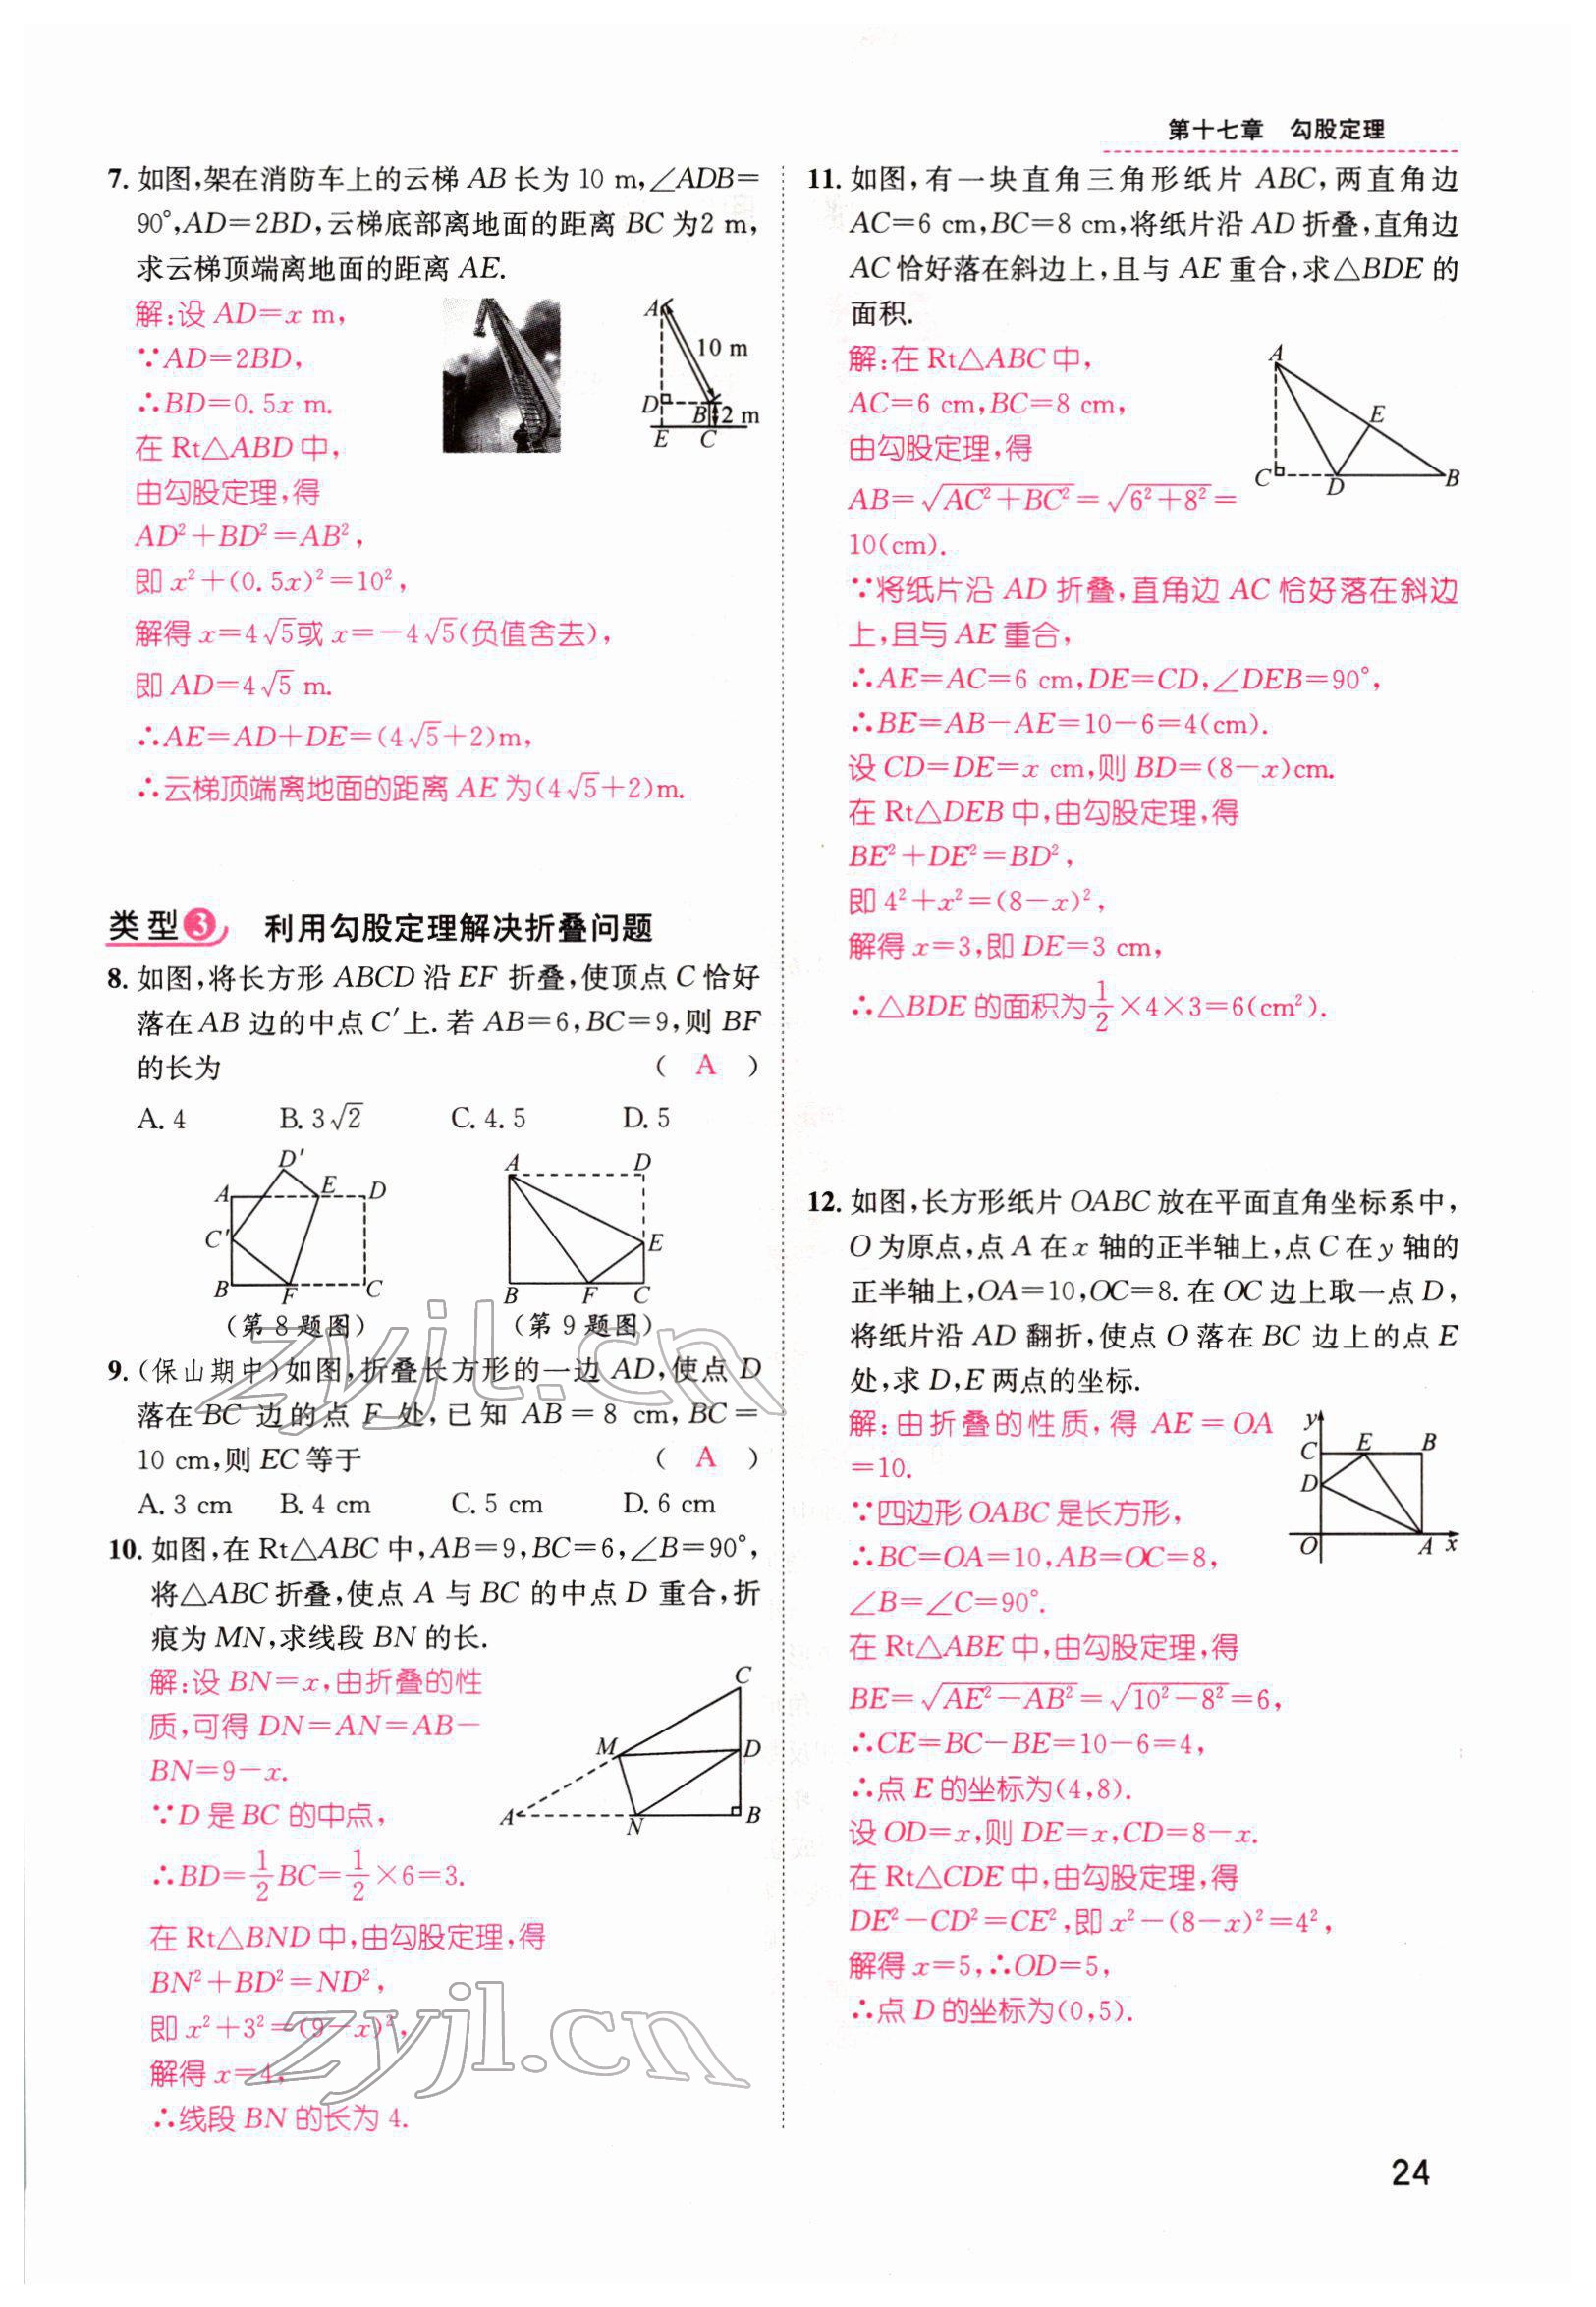 第十七章 勾股定理
7. 如图,架在消防车上的云梯 AB 长为 10 m,∠ADB=
90°,AD=2BD,云梯底部离地面的距离 BC 为2 m,
求云梯顶端离地面的距离 AE.
解:设 AD=x m,
∵AD=2BD,
∴BD=0.5x m.
在 Rt△ABD 中,
由勾股定理,得
AD²+BD²=AB²,
即 x²+(0.5x)²=10²,
解得 x=4√5或 x=-4√5(负值舍去),
即 AD=4√5 m.
∴AE=AD+DE=(4√5+2)m,
∴云梯顶端离地面的距离 AE 为(4√5+2)m.
A
10 m
D
B
2 m
E
C
类型3 利用勾股定理解决折叠问题
8. 如图,将长方形 ABCD 沿 EF 折叠,使顶点 C 恰好
落在 AB 边的中点 C′上.若 AB=6,BC=9,则 BF
的长为 ( A )
A. 4 B. 3√2 C. 4.5 D. 5
D′
A E D
C′
B F C
(第 8 题图)
A D
E
B F C
(第 9 题图)
9. (保山期中)如图,折叠长方形的一边 AD,使点 D
落在 BC 边的点 F 处,已知 AB=8 cm,BC=
10 cm,则 EC 等于 ( A )
A. 3 cm B. 4 cm C. 5 cm D. 6 cm
10. 如图,在 Rt△ABC 中,AB=9,BC=6,∠B=90°,
将△ABC 折叠,使点 A 与 BC 的中点 D 重合,折
痕为 MN,求线段 BN 的长.
解:设 BN=x,由折叠的性
质,可得 DN=AN=AB-
BN=9-x.
∵D 是 BC 的中点,
∴BD=1/2BC=1/2×6=3.
在 Rt△BND 中,由勾股定理,得
BN²+BD²=ND²,
即 x²+3²=(9-x)²,
解得 x=4,
∴线段 BN 的长为 4.
C
M
D
A
N
B
11. 如图,有一块直角三角形纸片 ABC,两直角边
AC=6 cm,BC=8 cm,将纸片沿 AD 折叠,直角边
AC 恰好落在斜边上,且与 AE 重合,求△BDE 的
面积.
解:在 Rt△ABC 中,
AC=6 cm,BC=8 cm,
由勾股定理,得
AB=√(AC²+BC²)=√(6²+8²)=
10(cm).
∵将纸片沿 AD 折叠,直角边 AC 恰好落在斜边
上,且与 AE 重合,
∴AE=AC=6 cm,DE=CD,∠DEB=90°,
∴BE=AB-AE=10-6=4(cm).
设 CD=DE=x cm,则 BD=(8-x)cm.
在 Rt△DEB 中,由勾股定理,得
BE²+DE²=BD²,
即 4²+x²=(8-x)²,
解得 x=3,即 DE=3 cm,
∴△BDE 的面积为1/2×4×3=6(cm²).
A
E
C
D
B
12. 如图,长方形纸片 OABC 放在平面直角坐标系中,
O 为原点,点 A 在 x 轴的正半轴上,点 C 在 y 轴的
正半轴上,OA=10,OC=8.在 OC 边上取一点 D,
将纸片沿 AD 翻折,使点 O 落在 BC 边上的点 E
处,求 D,E 两点的坐标.
解:由折叠的性质,得 AE=OA
=10.
∵四边形 OABC 是长方形,
∴BC=OA=10,AB=OC=8,
∠B=∠C=90°.
在 Rt△ABE 中,由勾股定理,得
BE=√(AE²-AB²)=√(10²-8²)=6,
∴CE=BC-BE=10-6=4,
∴点 E 的坐标为(4,8).
设 OD=x,则 DE=x,CD=8-x.
在 Rt△CDE 中,由勾股定理,得
DE²-CD²=CE²,即 x²-(8-x)²=4²,
解得 x=5,∴OD=5,
∴点 D 的坐标为(0,5).
y
C E B
D
O A x
zyjl.cn
zyjl.cn
24